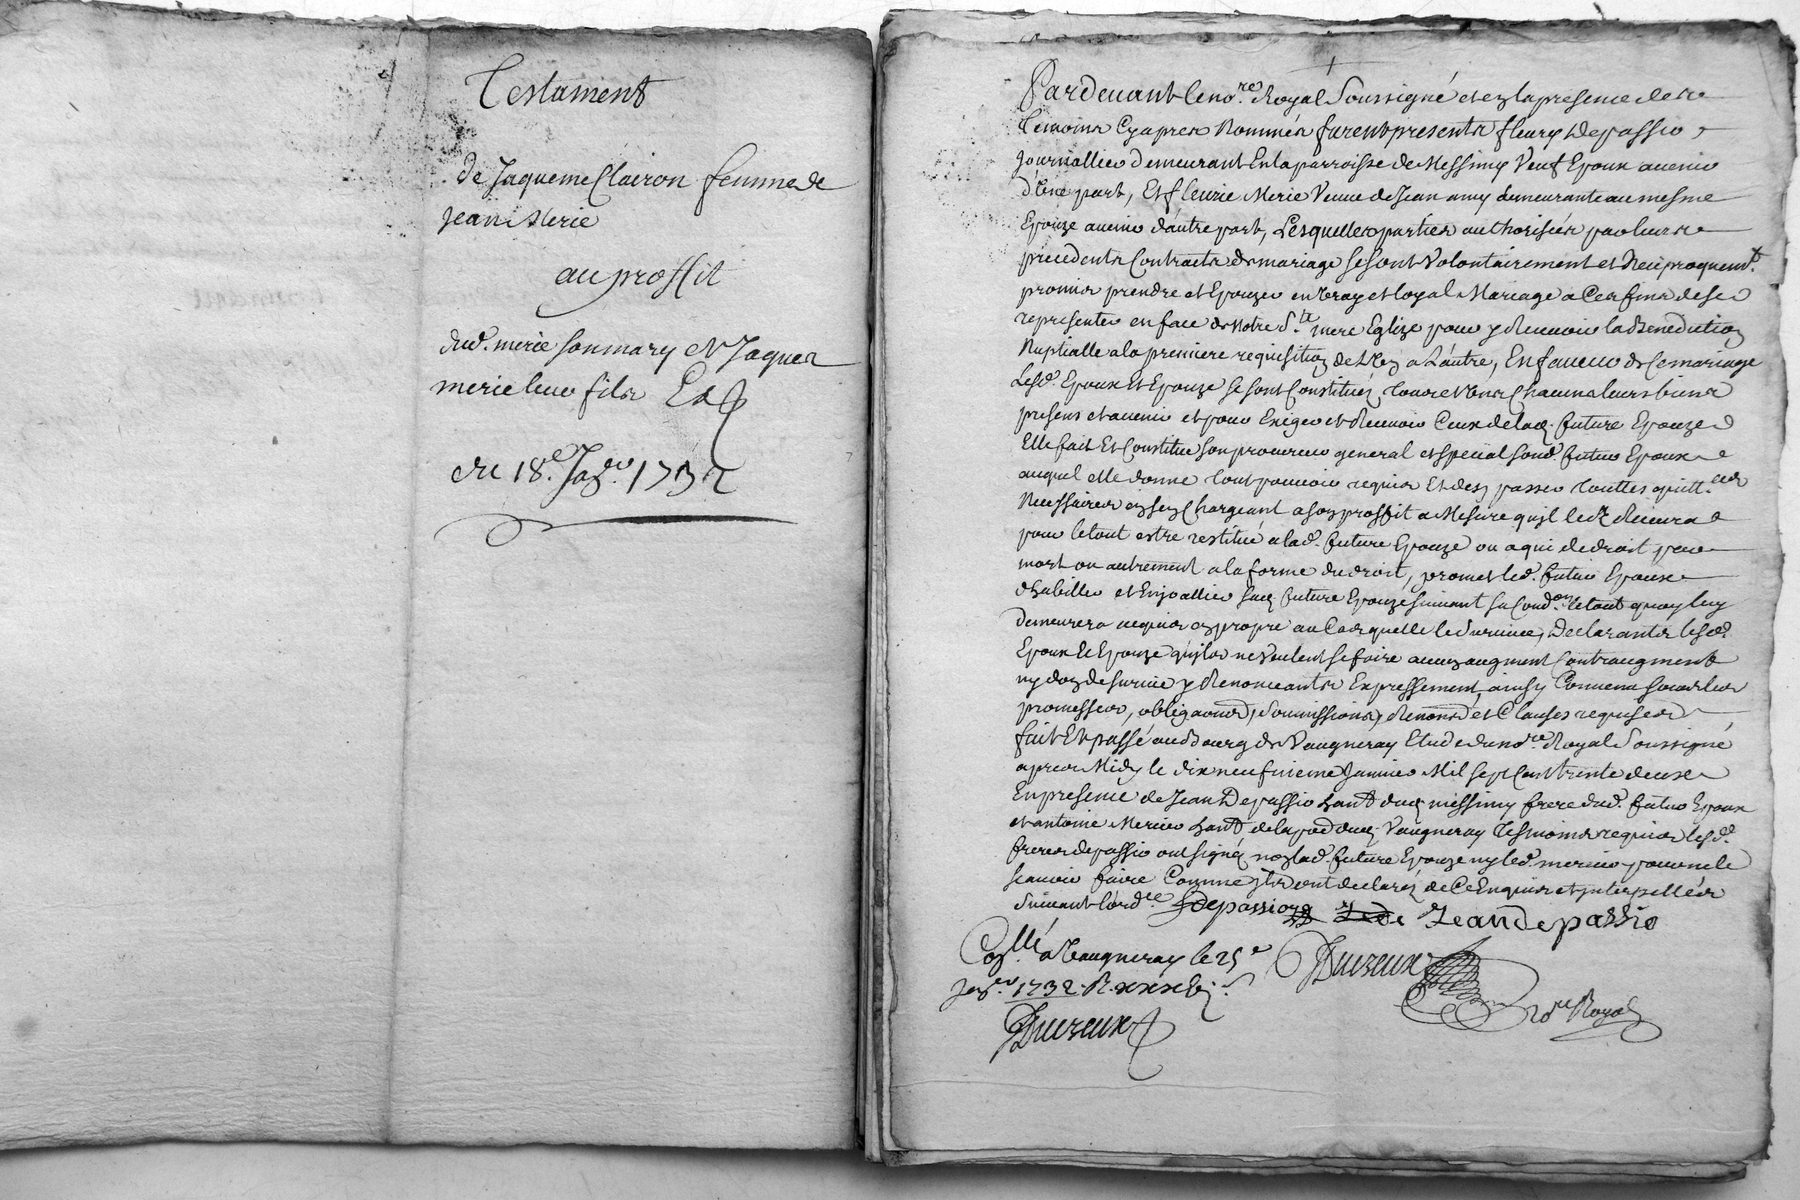 Testament
de Jaqueme Clairon femme de
Jean Merie
au proffit
dud. merie son mary et Jaques
merie leur fils
du 18e. Janr. 1732
Pardevant le nore. Royal Soussigné et en la presence des
temoins Cyapres Nommés furent presents fleury Depassio
journallier demeurant En la parroisse de Messimy Veuf Epoux avenir
d'Une part, Et fleurie Merie Veuve de Jean amy demeurante au mesme
Epouze avenir d'autre part, Lesquelles parties authorisées par leurs
precedents Contracts de mariage se sont Volontairement et Reciproquemt.
promis prendre et Epouzer en Vray et loyal Mariage a Ces fins de se
representer en face de Notre Ste. mere Eglize pour y Recevoir la Benediction
Nuptialle a la premiere requisition de L'Un a L'autre, En faveur de Ce mariage
Lesd. Epoux et Epouze se sont Constitués tous et Uns Chacuns leurs biens
presens et avenir et pour Exiger et Recevoir Ceux de lad. future Epouze
Elle fait Et Constitue son procureur general et special sond. futur Epoux
auquel elle donne tout pouvoir requis Et d'en passer touttes quittces
Necessaires en s'en Chargeant a son proffit a Mesure qu'il les Recevra
pour le tout estre restitué a lad. future Epouze ou a qui de droit par
mort ou autrement a la forme du droit, promet led. futur Epoux
d'habiller et Enjoallier sad. future Epouze suivant sa Condon. le tout quoy luy
demeurera acquis en propre au Cas quelle le Survive, Declarants lesd.
Epoux Et Epouze qu'ils ne Veulent se faire aucun augment Contraugment
ny don de survie y Renonceants Expressement, ainsy Convenu sous les
promesses, obligaons, Soumissions, Renons. et Clauses requises
fait Et passé au Bourg de Vaugneray Etude du nore. Royal Soussigné
apres Midy le dix neufvieme Janvier Mil Sept Cent trente deux
En presence de Jean Depassio hant. dud. messimy frere dud. futur Epoux
et antoine Mercier hant. dud. Vaugneray tesmoins requis lesd.
freres depassio ont signé non lad. future Epouze ny led. mercier pour ne le
scavoir faire Comme ils ont declaré de Ce Enquis et interpellés
Suivant l'ordce. Fdepassio Jean depassio
Conllé a Vaugneray le 25e
Janer. 1732. R.
Duzeux
Duzeux
Nore Royal